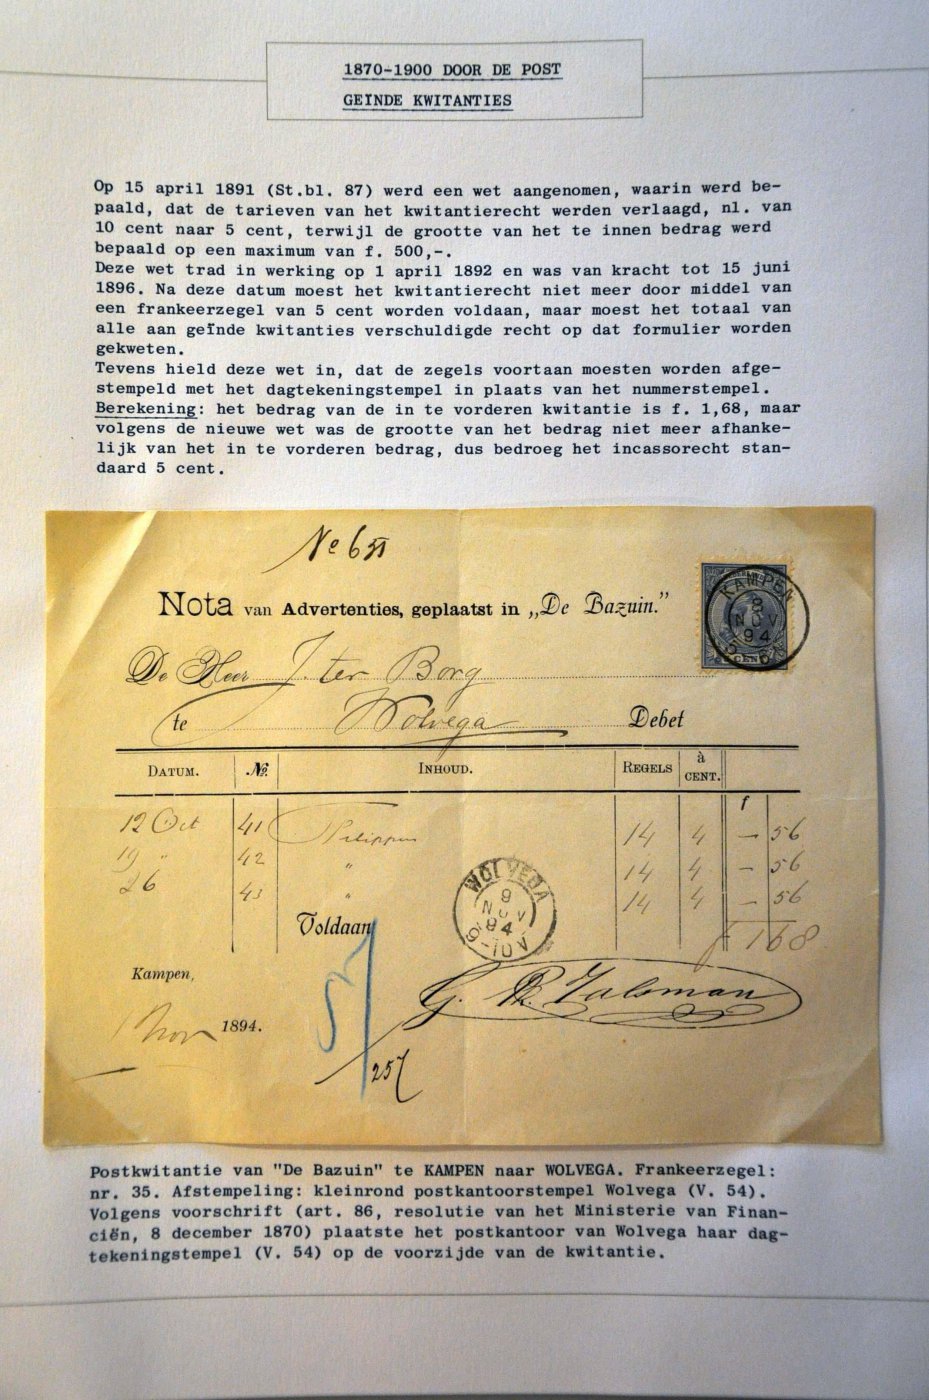 1870-1900 DOOR DE POST
GEÏNDE KWITANTIES
Op 15 april 1891 (St.bl. 87) werd een wet aangenomen, waarin werd be-
paald, dat de tarieven van het kwitantierecht werden verlaagd, nl. van
10 cent naar 5 cent, terwijl de grootte van het te innen bedrag werd
bepaald op een maximum van f. 500,-.
Deze wet trad in werking op 1 april 1892 en was van kracht tot 15 juni
1896. Na deze datum moest het kwitantierecht niet meer door middel van
een frankeerzegel van 5 cent worden voldaan, maar moest het totaal van
alle aan geïnde kwitanties verschuldigde recht op dat formulier worden
gekweten.
Tevens hield deze wet in, dat de zegels voortaan moesten worden afge-
stempeld met het dagtekeningstempel in plaats van het nummerstempel.
Berekening: het bedrag van de in te vorderen kwitantie is f. 1,68, maar
volgens de nieuwe wet was de grootte van het bedrag niet meer afhanke-
lijk van het in te vorderen bedrag, dus bedroeg het incassorecht stan-
daard 5 cent.
No 651
KAMPEN
8
NOV
94
Nota van Advertenties, geplaatst in „De Bazuin.”
De Heer J. ter Borg
te Wolvega Debet
DATUM. No. INHOUD. REGELS à CENT.
f
12 Oct 41 14 4 — 56
19 " 42 " 14 4 — 56
26 43 " 14 4 — 56
f 1 68
WOLVEGA
9
NOV
94
9-10V
Voldaan
Kampen,
1 Nov 1894.
57
G. Ph. Zalsman
257
Postkwitantie van "De Bazuin" te KAMPEN naar WOLVEGA. Frankeerzegel:
nr. 35. Afstempeling: kleinrond postkantoorstempel Wolvega (V. 54).
Volgens voorschrift (art. 86, resolutie van het Ministerie van Finan-
ciën, 8 december 1870) plaatste het postkantoor van Wolvega haar dag-
tekeningstempel (V. 54) op de voorzijde van de kwitantie.